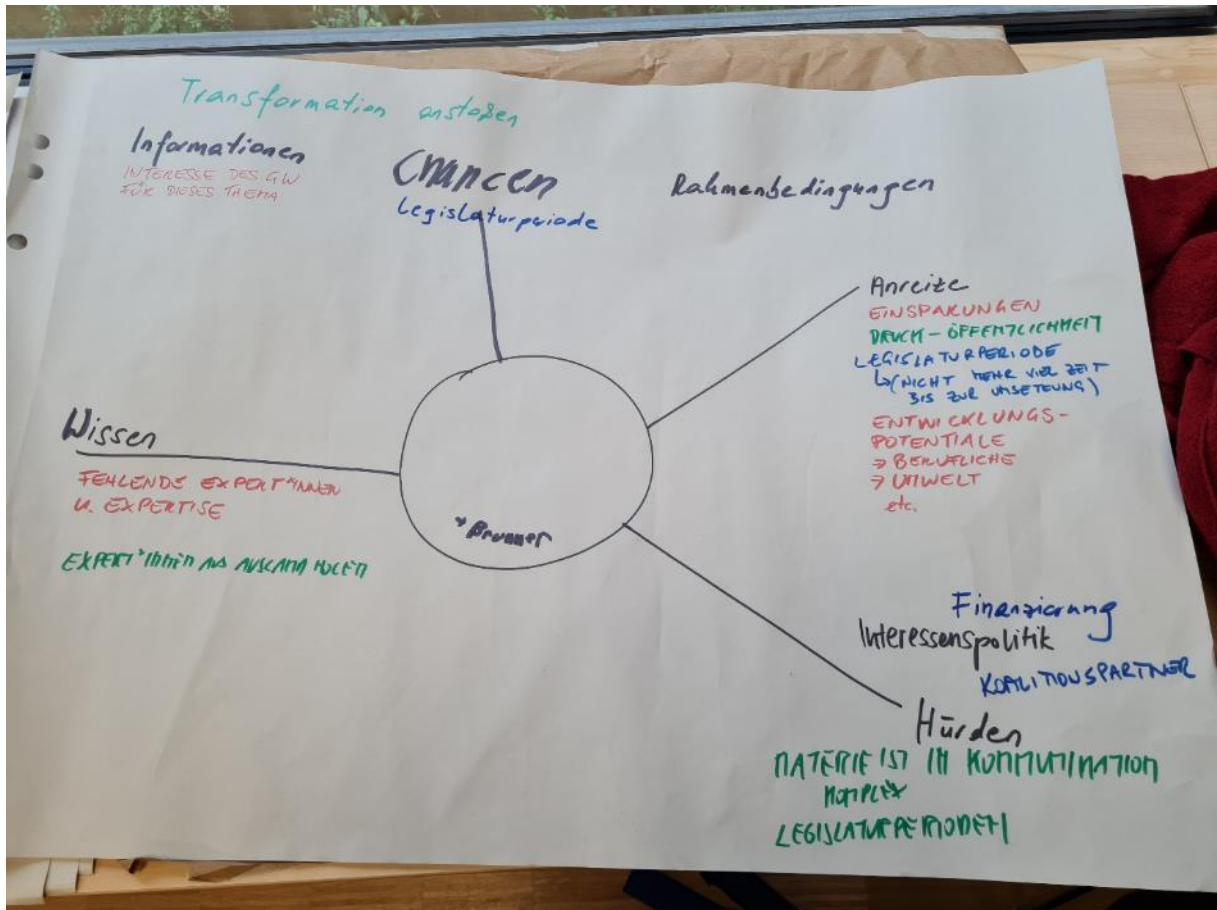 Transformation anstoßen
Informationen
INTERESSE DES GW
FÜR DIESES THEMA
Chancen
Legislaturperiode
Rahmenbedingungen
Anreize
EINSPARUNGEN
DRUCK - ÖFFENTLICHKEIT
LEGISLATURPERIODE
↳ (NICHT MEHR VIEL ZEIT
BIS ZUR UMSETEUNG)
ENTWICKLUNGS-
POTENTIALE
→ BERUFLICHE
→ UMWELT
etc.
Wissen
FEHLENDE EXPERT*INNEN
U. EXPERTISE
EXPERT*INNEN AUS AUSLAND HOLEN
*Brunner
Finanzierung
Interessenspolitik
KOALITIONSPARTNER
Hürden
MATERIE IST IN KOMMUNIKATION
KOMPLEX
LEGISLATURPERIODEN